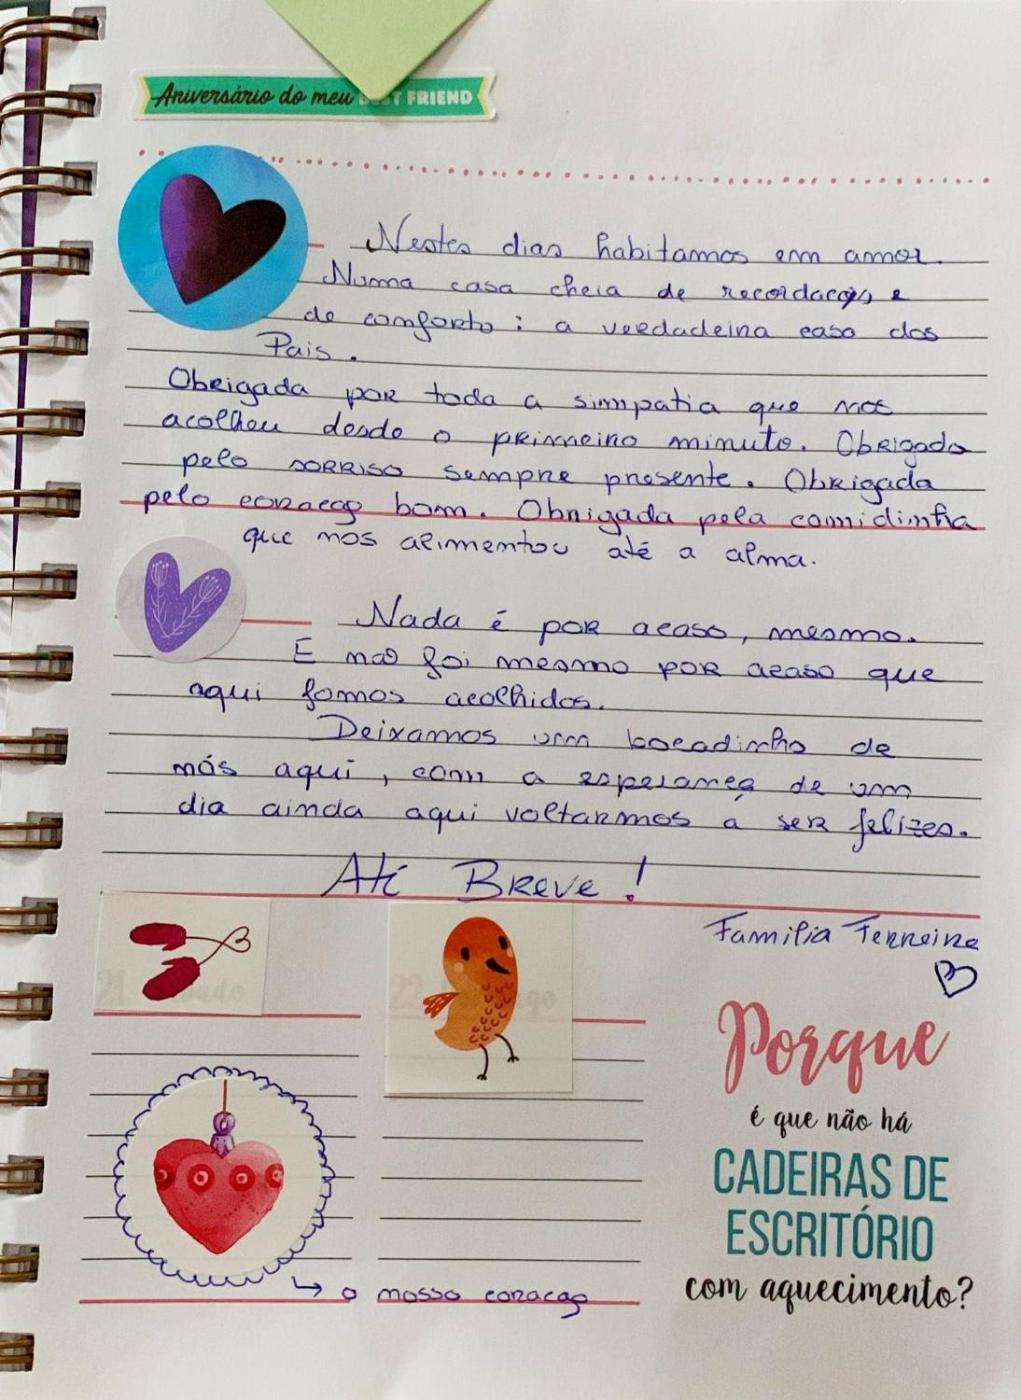 Aniversário do meu BEST FRIEND
Nestes dias habitamos em amor.
Numa casa cheia de recordações e
de conforto: a verdadeira casa dos
Pais.
Obrigada por toda a simpatia que nos
acolheu desde o primeiro minuto. Obrigada
pelo sorriso sempre presente. Obrigada
pelo coração bom. Obrigada pela comidinha
que nos alimentou até a alma.
Nada é por acaso, mesmo.
E não foi mesmo por acaso que
aqui fomos acolhidos.
Deixamos um bocadinho de
nós aqui, com a esperança de um
dia ainda aqui voltarmos a ser felizes.
Até Breve!
Família Ferreira
21 Sábado
22 Domingo
Porque
é que não há
CADEIRAS DE
ESCRITÓRIO
com aquecimento?
o nosso coração